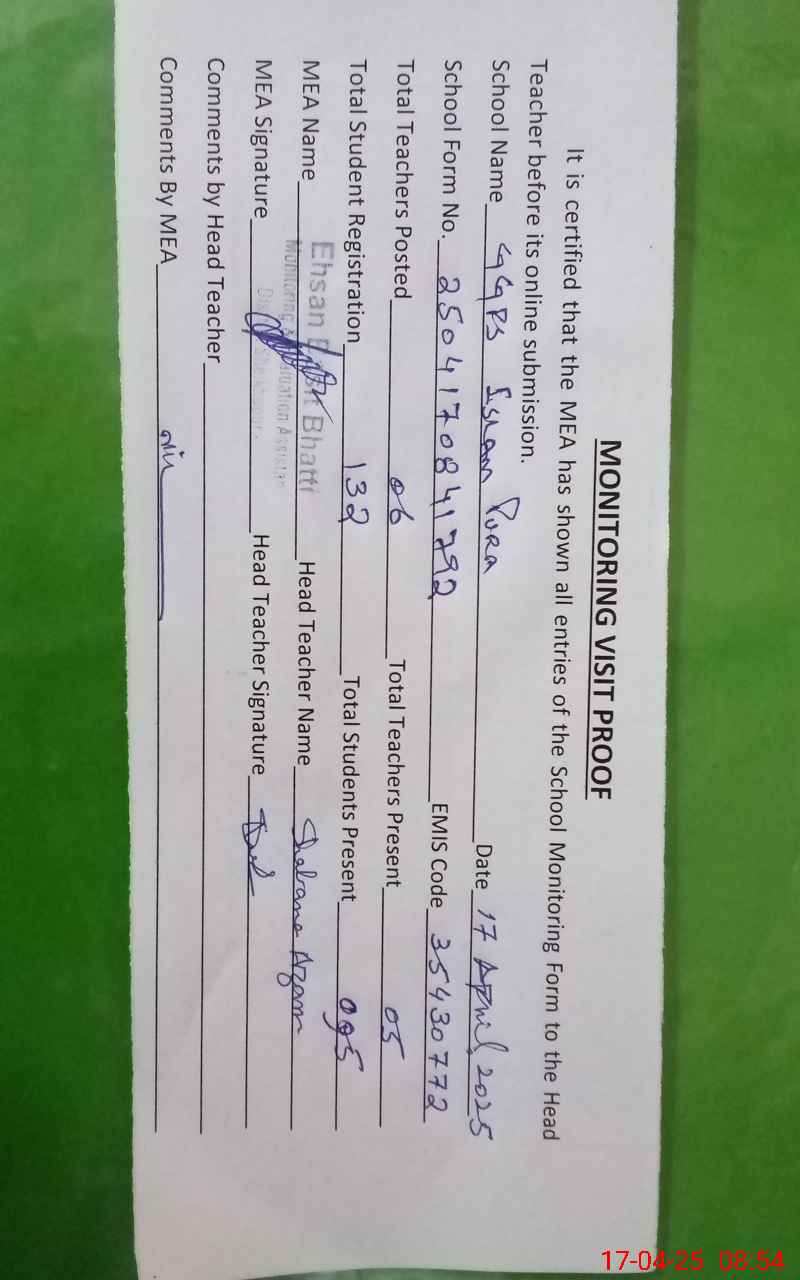 MONITORING VISIT PROOF
It is certified that the MEA has shown all entries of the School Monitoring Form to the Head
Teacher before its online submission.
School Name GGPS Islam Pura Date 17 April, 2025
School Form No. 2504170841792 EMIS Code 35430772
Total Teachers Posted 06 Total Teachers Present 05
Total Student Registration 132 Total Students Present 095
MEA Name Ehsan Bhatti Head Teacher Name Shabana Azam
Monitoring Evaluation Assistan
MEA Signature Head Teacher Signature
Comments by Head Teacher
Comments By MEA
17-04-25 08:54